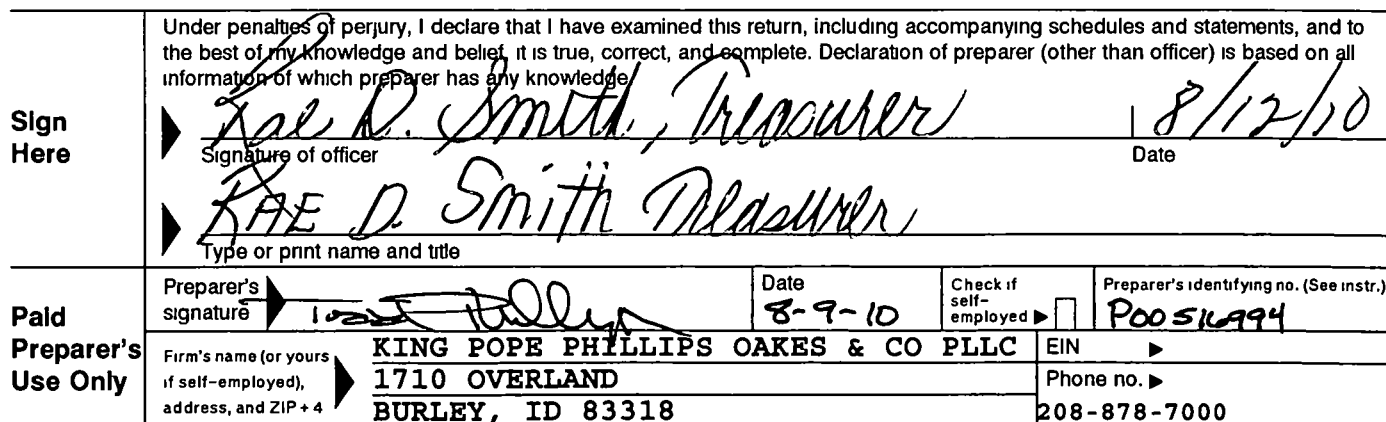 Under penalties of perjury, I declare that I have examined this return, including accompanying schedules and statements, and to
the best of my knowledge and belief, it is true, correct, and complete. Declaration of preparer (other than officer) is based on all
information of which preparer has any knowledge
Sign
Here
Rae D. Smith, Treasurer 8/12/10
Signature of officer Date
RAE D. Smith Treasurer
Type or print name and title
Paid
Preparer's
Use Only
Preparer's
signature Phillips
Date
8-9-10
Check if
self-
employed
Preparer's identifying no. (See instr.)
P00516994
Firm's name (or yours
if self-employed),
address, and ZIP + 4
KING POPE PHILLIPS OAKES & CO PLLC
1710 OVERLAND
BURLEY, ID 83318
EIN
Phone no.
208-878-7000